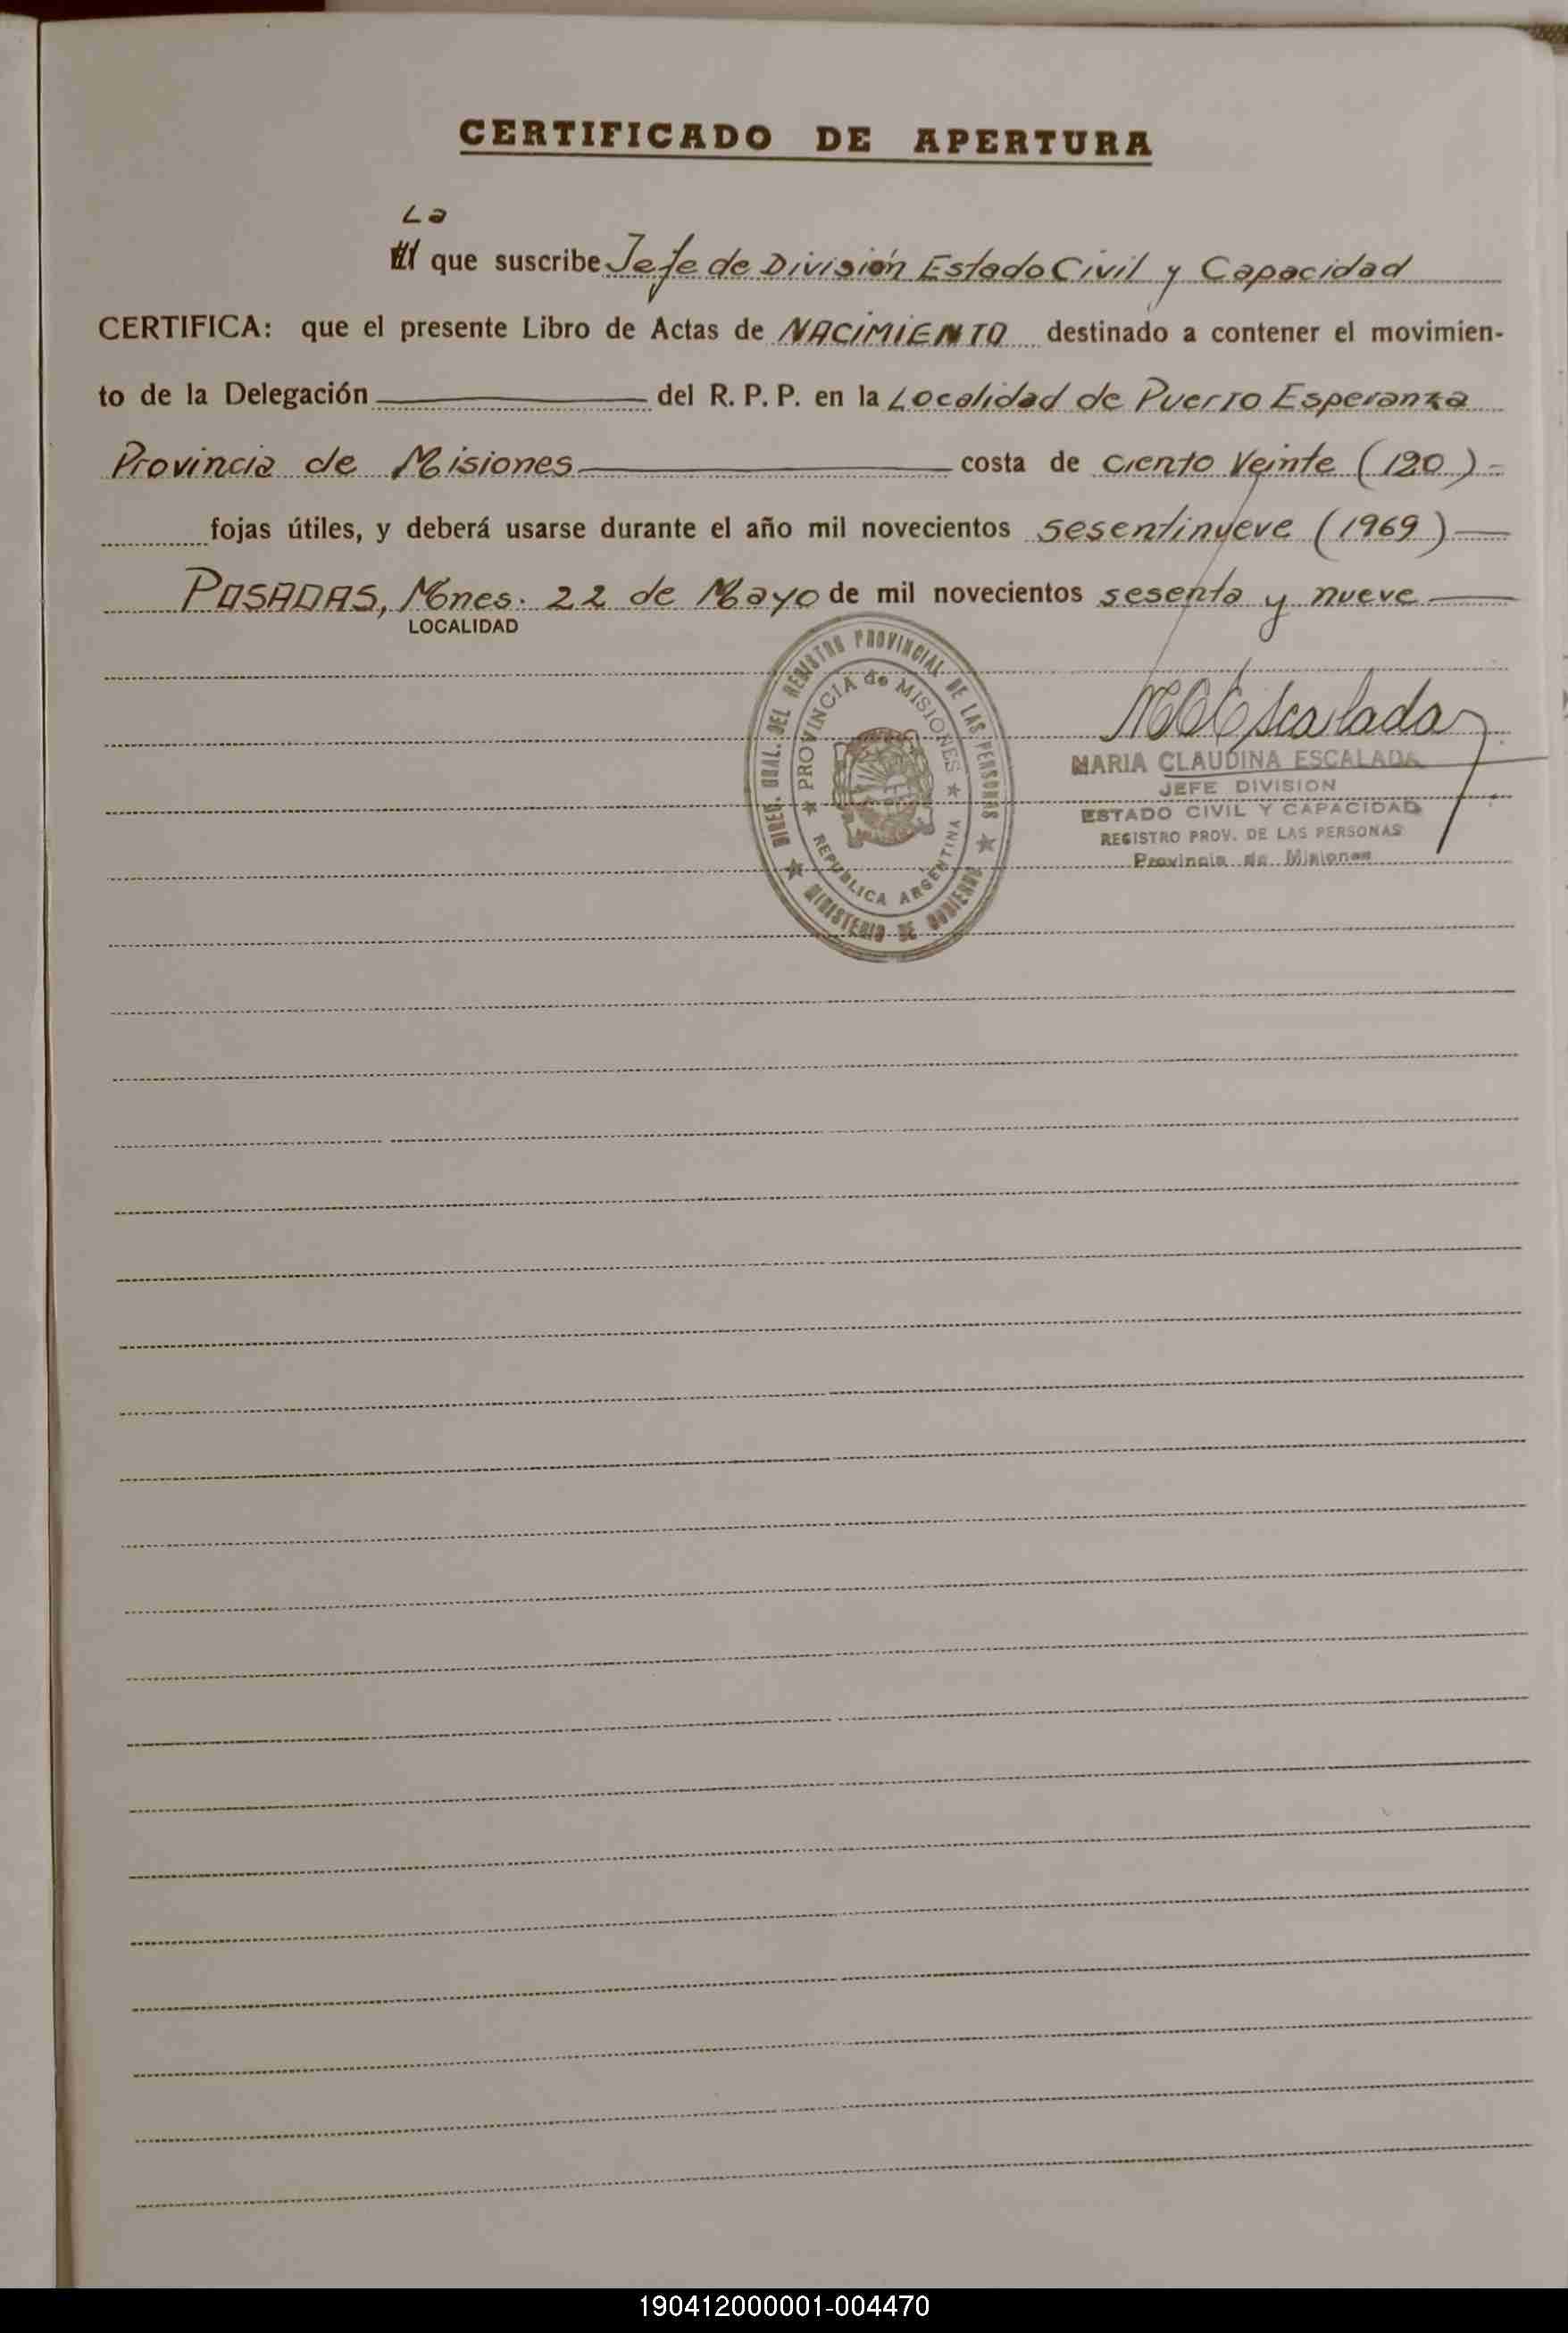 CERTIFICADO DE APERTURA
La
El que suscribe Jefe de División Estado Civil y Capacidad
CERTIFICA: que el presente Libro de Actas de NACIMIENTO destinado a contener el movimien-
to de la Delegación del R. P. P. en la Localidad de Puerto Esperanza
Provincia de Misiones costa de ciento Veinte (120) -
fojas útiles, y deberá usarse durante el año mil novecientos sesentinueve (1969)
POSADAS, Mnes. 22 de Mayo de mil novecientos sesenta y nueve
LOCALIDAD
DIREC. GRAL. DEL REGISTRO PROVINCIAL DE LAS PERSONAS
MINISTERIO DE GOBIERNO
PROVINCIA de MISIONES
REPUBLICA ARGENTINA
MCEscalada
MARIA CLAUDINA ESCALADA
JEFE DIVISION
ESTADO CIVIL Y CAPACIDAD
REGISTRO PROV. DE LAS PERSONAS
Provincia de Misiones
190412000001-004470